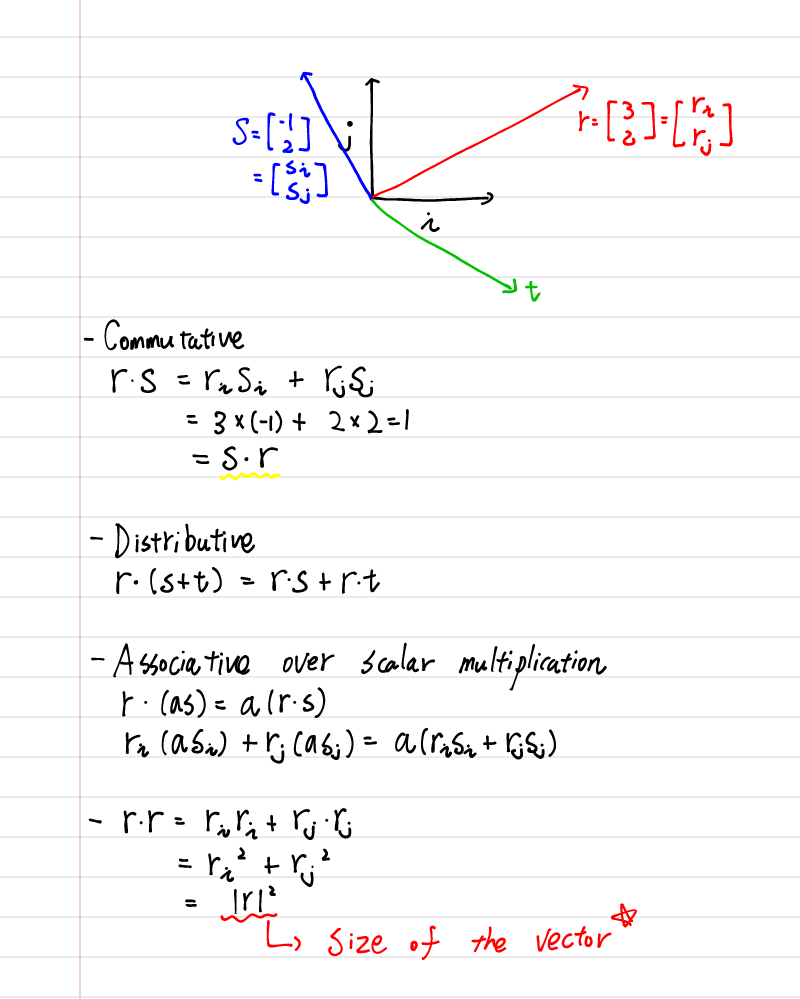 S = [-1 2]
= [s_i s_j]
j
i
r = [3 2] = [r_i r_j]
t
- Commutative
r·s = r_i s_i + r_j s_j
= 3×(-1) + 2×2 = 1
= s·r
- Distributive
r·(s+t) = r·s + r·t
- Associative over scalar multiplication
r·(as) = a(r·s)
r_i(as_i) + r_j(as_j) = a(r_i s_i + r_j s_j)
- r·r = r_i r_i + r_j·r_j
= r_i² + r_j²
= |r|²
↳ size of the vector ☆